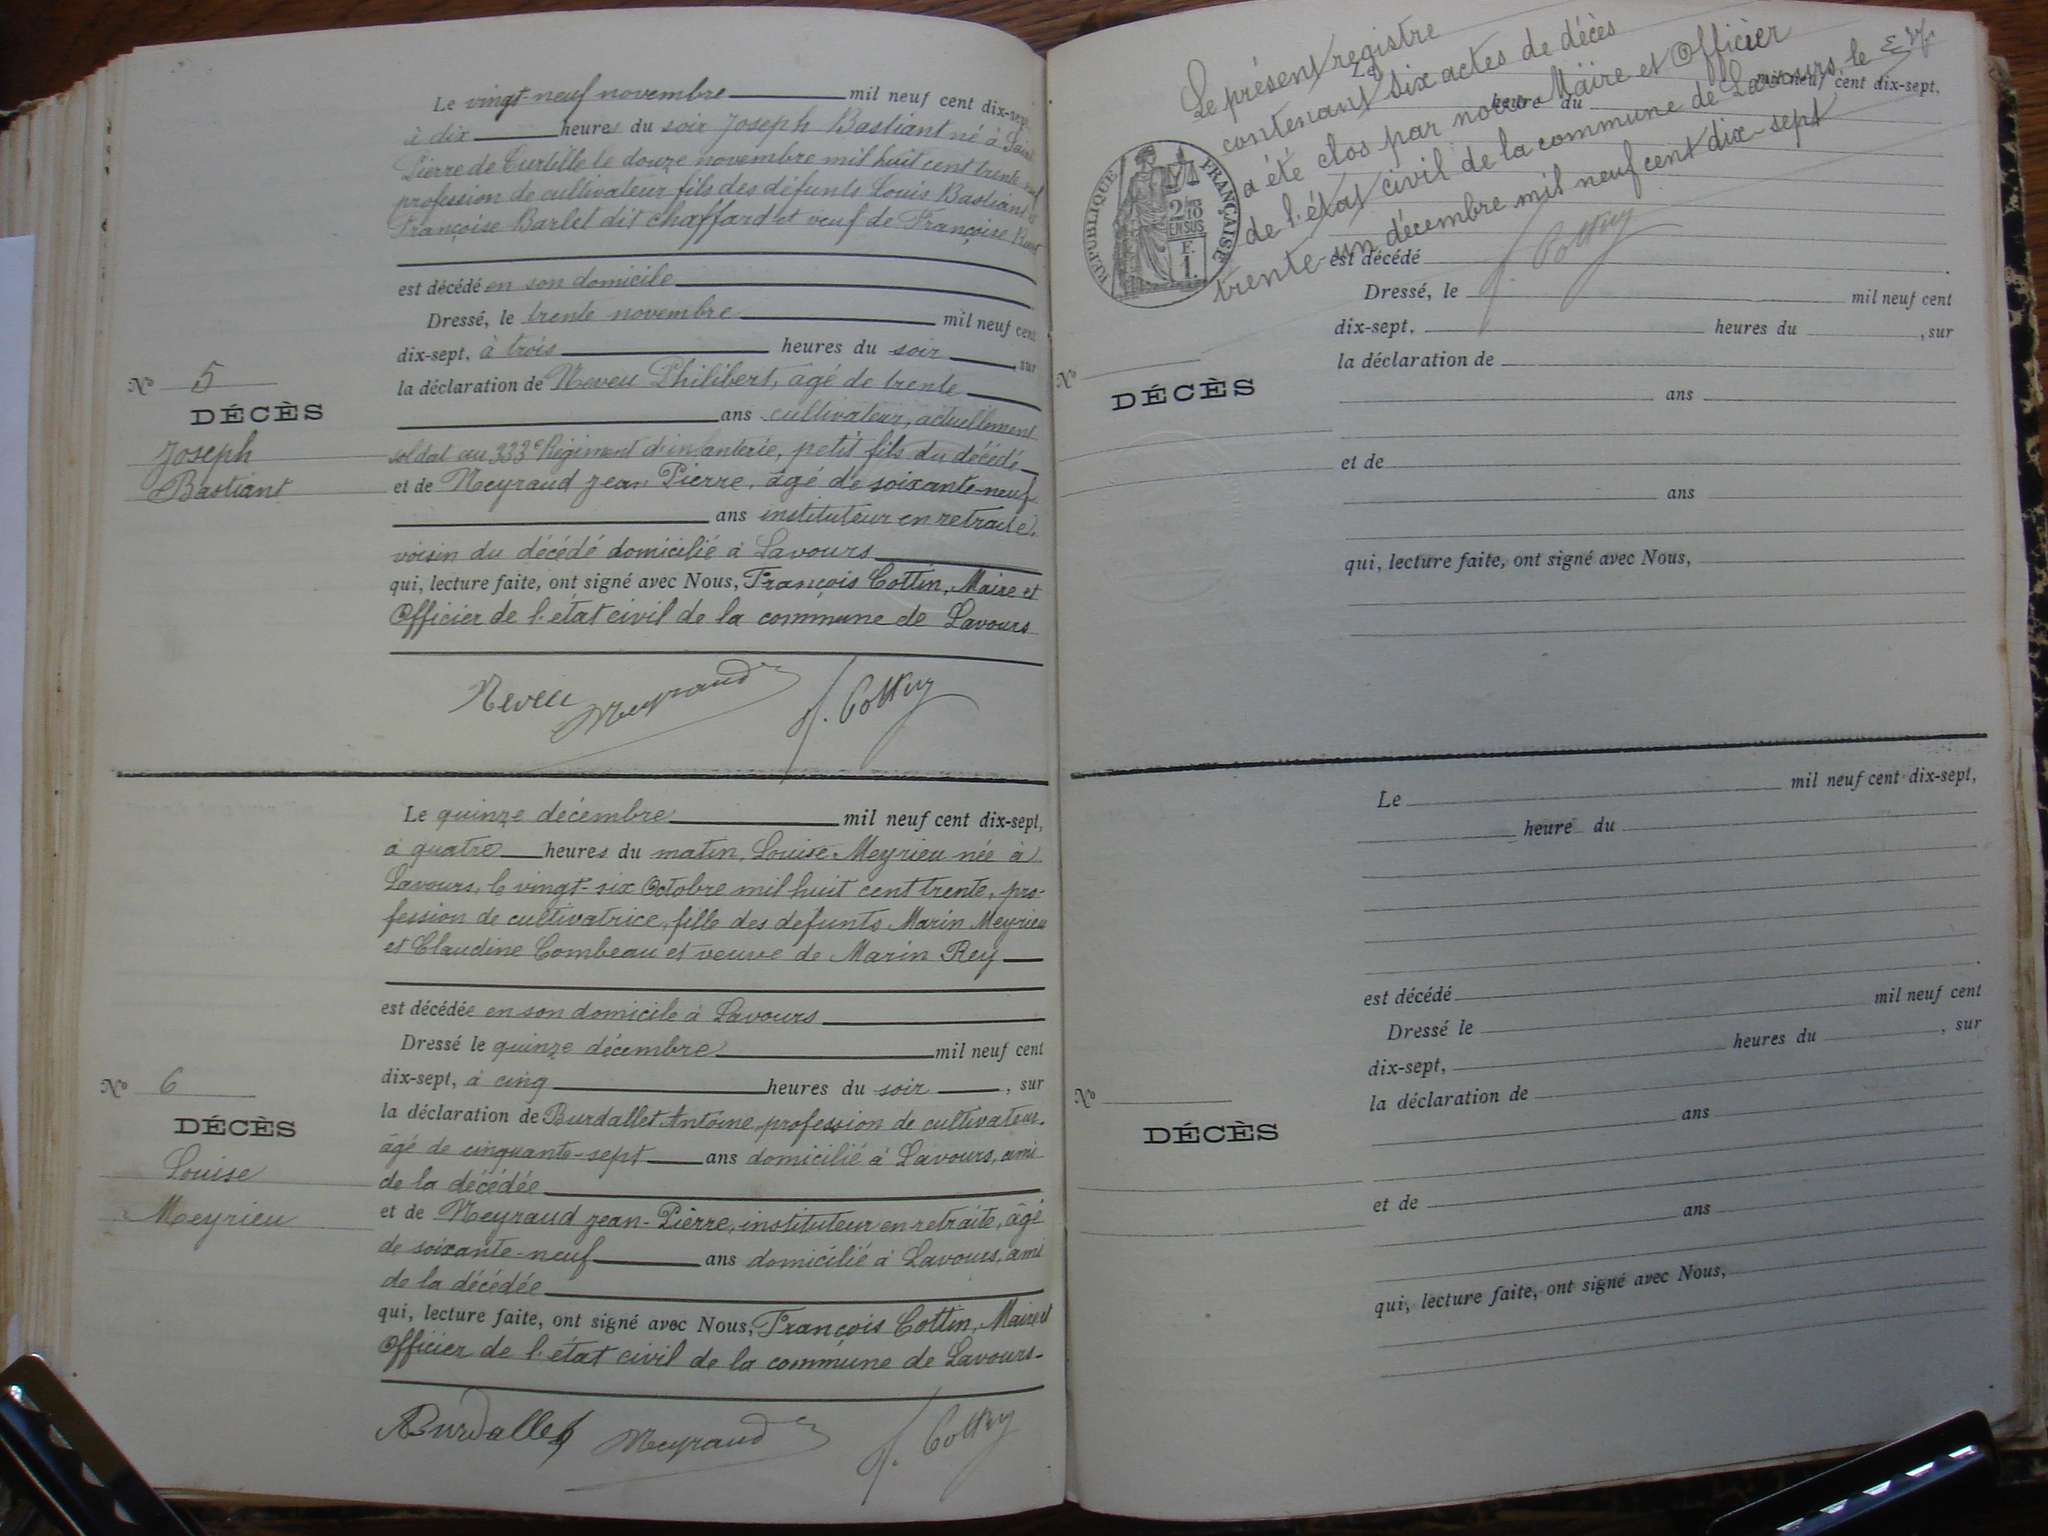 Le vingt-neuf novembre mil neuf cent dix-sept,
à dix heures du soir Joseph Bastiant né à Saint
Pierre de Curtille le douze novembre mil huit cent trente neuf
profession de cultivateur fils des défunts Louis Bastiant et
Françoise Barlet dit Chaffard et veuf de Françoise
est décédé en son domicile
Dressé, le trente novembre mil neuf cent
dix-sept, à trois heures du soir, sur
la déclaration de Neveu Philibert, âgé de trente
ans cultivateur, actuellement
soldat au 333e Régiment d'infanterie, petit fils du décédé
et de Meyraud Jean Pierre, âgé de soixante-neuf
ans instituteur en retraite,
voisin du décédé domicilié à Lavours
qui, lecture faite, ont signé avec Nous, François Cottin, Maire et
Officier de l'état civil de la commune de Lavours
Neveu Meyraud f. Cottin
No 5
DÉCÈS
Joseph
Bastiant
Le quinze décembre mil neuf cent dix-sept,
à quatre heures du matin, Louise Meyrieu née à
Lavours, le vingt-six Octobre mil huit cent trente, pro-
fession de cultivatrice, fille des defunts Marin Meyrieu
et Claudine Combeau et veuve de Marin Rey
est décédée en son domicile à Lavours
Dressé le quinze décembre mil neuf cent
dix-sept, à cinq heures du soir, sur
la déclaration de Burdallet Antoine, profession de cultivateur,
âgé de cinquante-sept ans domicilié à Lavours, ami
de la décédée
et de Meyraud Jean-Pierre, instituteur en retraite, âgé
de soixante-neuf ans domicilié à Lavours, ami
de la décédée
qui, lecture faite, ont signé avec Nous, François Cottin, Maire et
Officier de l'état civil de la commune de Lavours-
ABurdallet Meyraud f. Cottin
No 6
DÉCÈS
Louise
Meyrieu
Le présent registre
contenant six actes de décès
a été clos par nous Maire et Officier
de l'état civil de la commune de Lavours, le
trente-un décembre mil neuf cent dix-sept
f. Cottin
RÉPUBLIQUE FRANÇAISE
2/10
EN SUS
F.
1.
mil neuf cent dix-sept,
heure du
est décédé
Dressé, le mil neuf cent
dix-sept, heures du , sur
la déclaration de
ans
et de
ans
qui, lecture faite, ont signé avec Nous,
No
DÉCÈS
Le mil neuf cent dix-sept,
heure du
est décédé
Dressé le mil neuf cent
dix-sept, heures du , sur
la déclaration de
ans
et de
ans
qui, lecture faite, ont signé avec Nous,
No
DÉCÈS